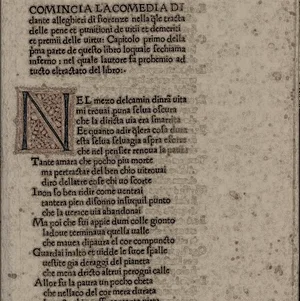 COMINCIA LACOMEDIA DI
dante alleghieri di fiorenze nella q̄le tracta
delle pene et punitioni de uitii et demeriti
et premii delle uirtu: Capitolo primo della
p̄ma parte de questo libro loquale sechiama
inferno: nel quale lautore fa prohemio ad
tucto eltractato del libro:
NEL mezo delcamin dinr̄a uita
mi trouai puna selua oscura
che la diricta uia era smarrita
Et quanto adir q̄lera cosa dura
esta selua seluagia aspra eforte
che nel pensier renoua la paura
Tante amara che pocho piu morte
ma pertractar del ben chio uitrouai
diro dellaltre cose chi uo scorte
I non so ben ridir come uentrai
tantera pien disonno insuquil punto
che la uerace uia abandonai
Ma poi che fui appie dum colle gionto
ladoue terminaua quella ualle
che mauea dipaura el cor compuncto
Guardai inalto et uidde le sue spalle
uestite gia deraggi del pianeta
che mena dricto altrui perogni calle
Allor fu la paura un pocho cheta
che nellaco del cor mera durata